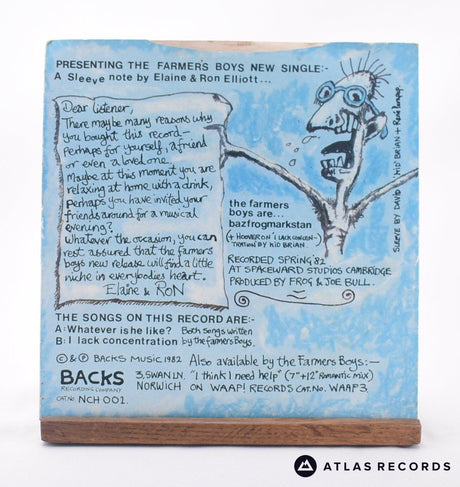 PRESENTING THE FARMER'S BOYS NEW SINGLE:-
A Sleeve note by Elaine & Ron Elliott...
Dear Listener,
There may be many reasons why
you bought this record—
Perhaps for yourself, a friend
or even a loved one.
Maybe at this moment you are
relaxing at home with a drink,
Perhaps you have invited your
friends around for a musical
evening?
Whatever the occasion, you can
rest assured that the farmers
boys new release will find a little
niche in everybodies heart.
Elaine & RON
SLEEVE BY DAVID 'KID' BRIAN +
the farmers
boys are...
bazfrogmarkstan
(+ HOOVER ON 'I LACK CONCEN-
TRATION' BY KID BRIAN)
RECORDED SPRING '82
AT SPACEWARD STUDIOS CAMBRIDGE
PRODUCED BY FROG & JOE BULL.
THE SONGS ON THIS RECORD ARE:-
A: Whatever is he like? Both songs written
B: I lack concentration by the farmers Boys.
© & ℗ BACKS MUSIC 1982
Also available by the Farmers Boys:—
BACKS
RECORDING COMPANY
3, SWAN LN,
NORWICH
"I think I need help" (7"+12" ROMANTIC MIX)
ON WAAP! RECORDS CAT. No. WAAP3.
CAT No NCH 001.
ATLAS RECORDS